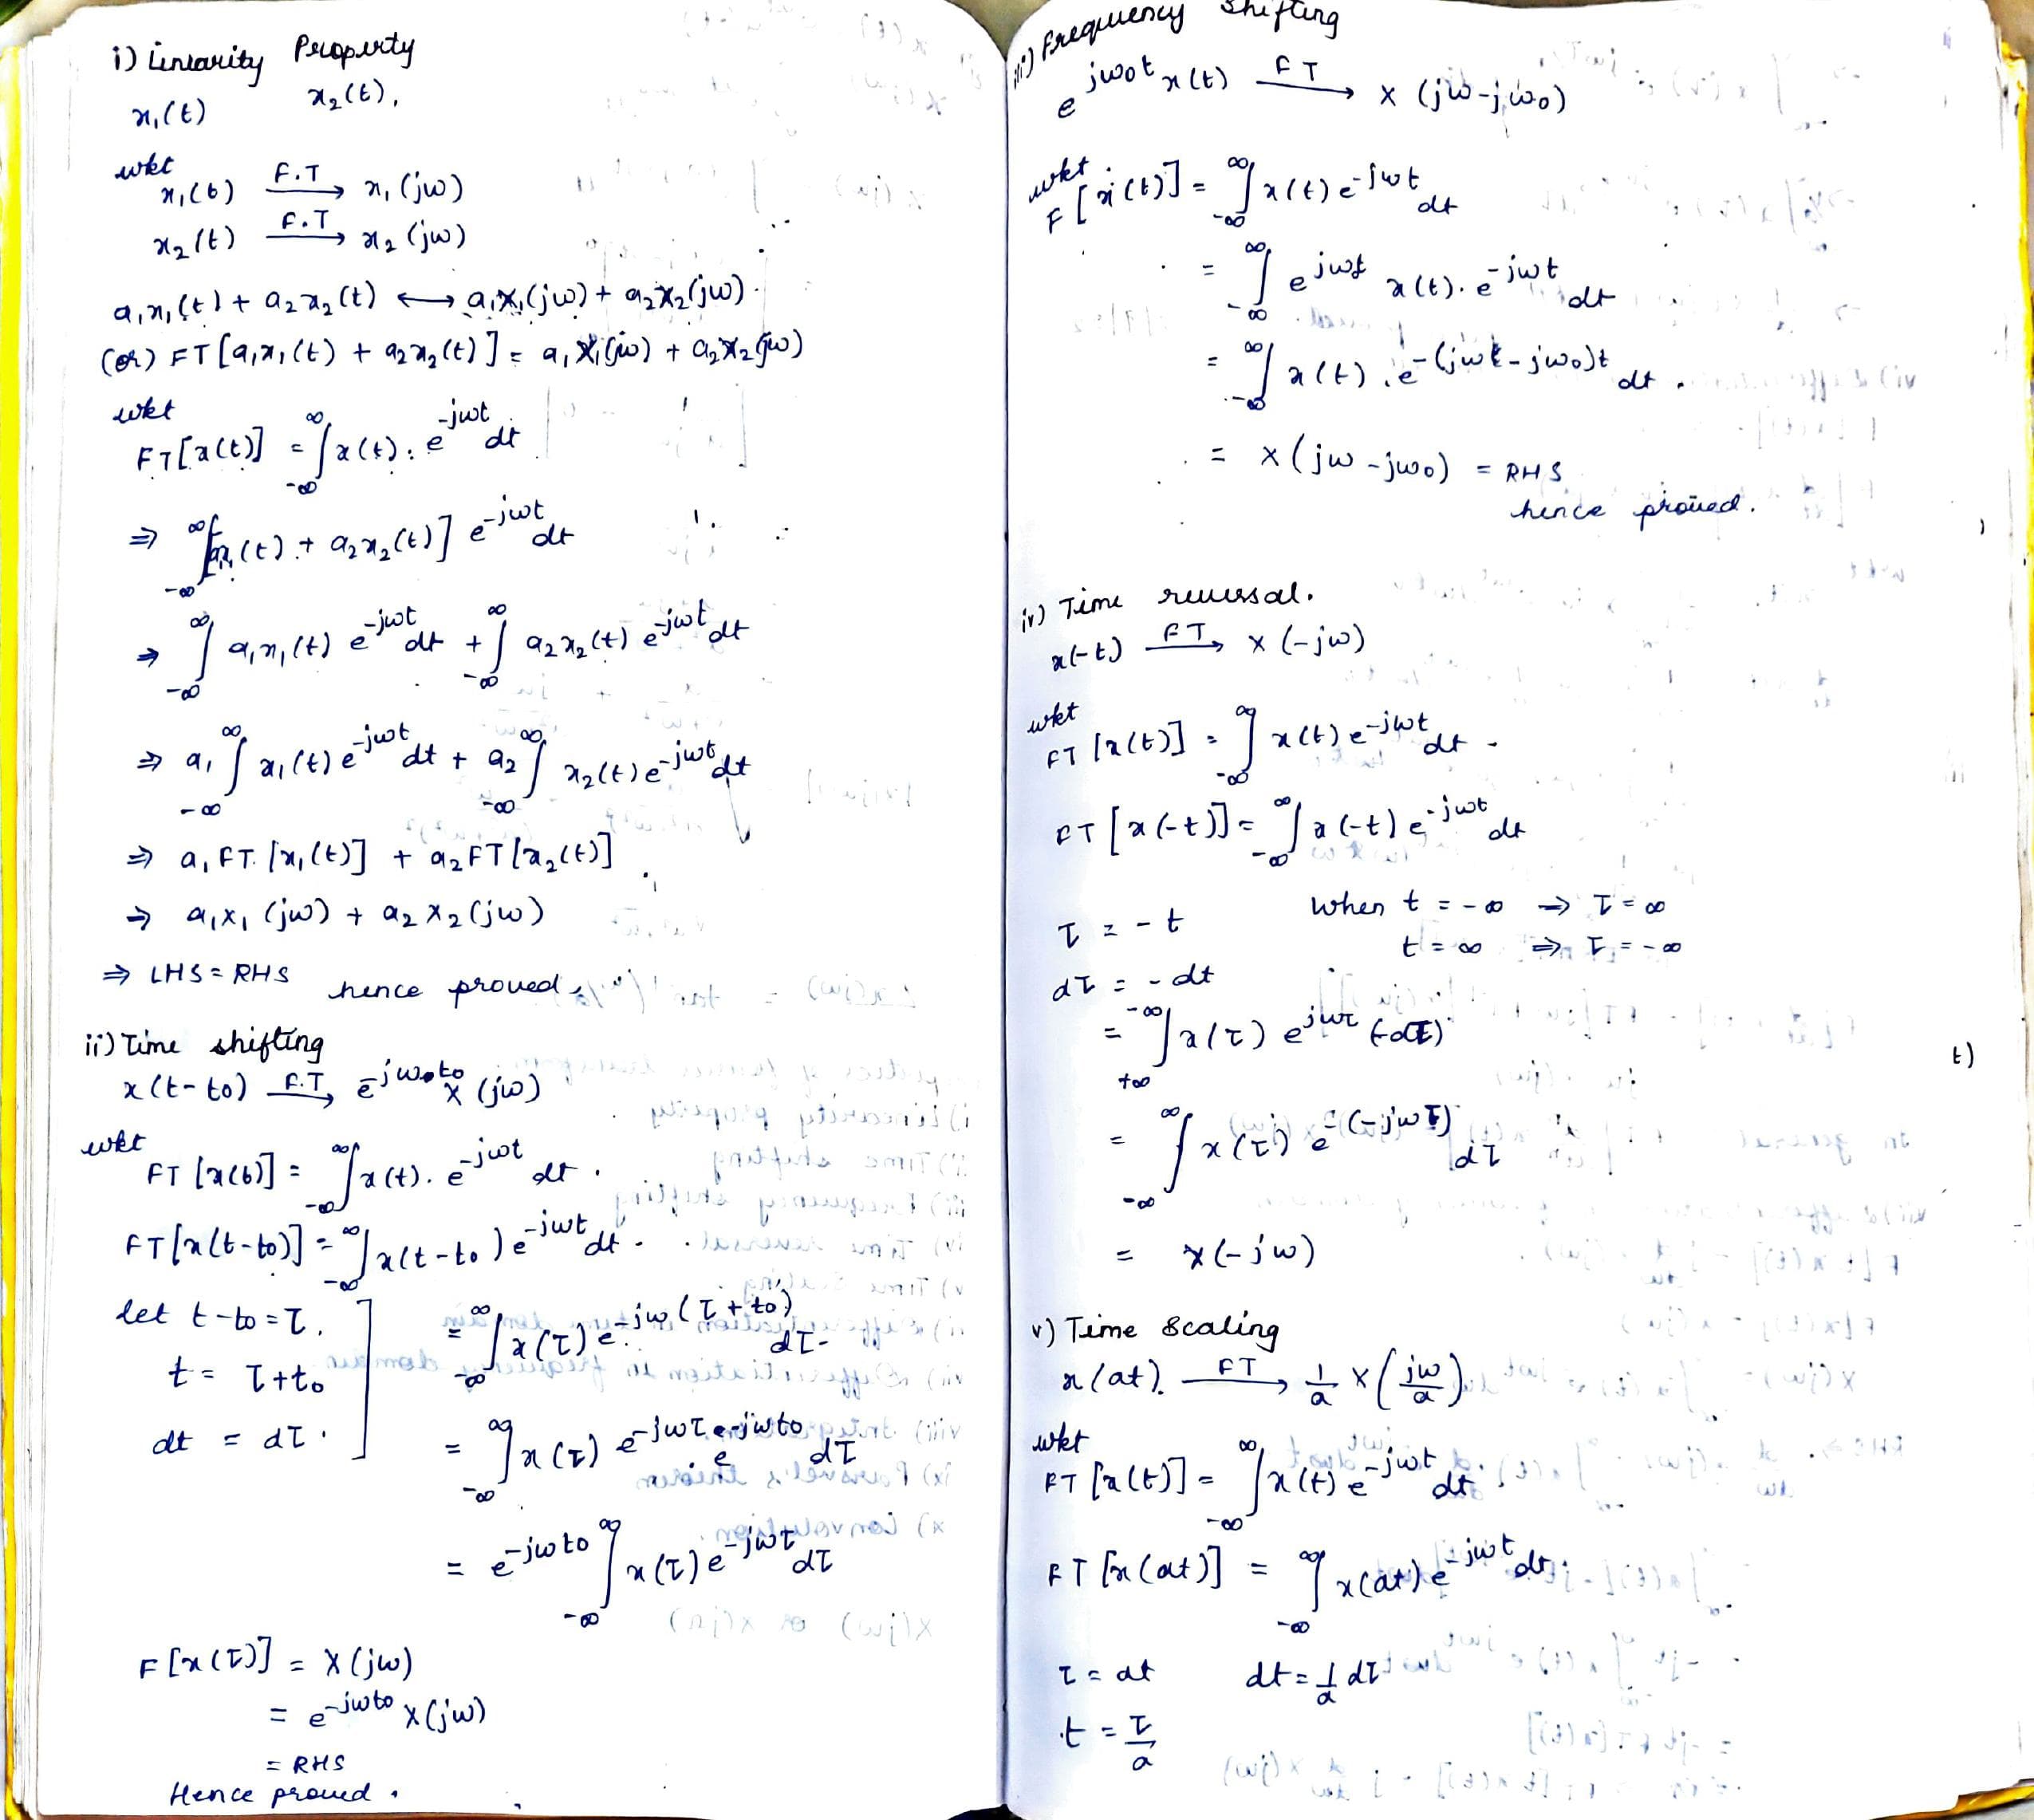 i) Linearity Property
x₁(t) x₂(t),
wkt
x₁(t) F.T→ x₁(jω)
x₂(t) F.T→ x₂(jω)
a₁x₁(t) + a₂x₂(t) ↔ a₁X₁(jω) + a₂X₂(jω).
(or) FT[a₁x₁(t) + a₂x₂(t)] = a₁X₁(jω) + a₂X₂(jω)
wkt
FT[x(t)] = ∫_{-∞}^{∞} x(t). e^{-jωt} dt
⇒ ∫_{-∞}^{∞} [a₁x₁(t) + a₂x₂(t)] e^{-jωt} dt
⇒ ∫_{-∞}^{∞} a₁x₁(t) e^{-jωt} dt + ∫_{-∞}^{∞} a₂x₂(t) e^{-jωt} dt
⇒ a₁ ∫_{-∞}^{∞} x₁(t) e^{-jωt} dt + a₂ ∫_{-∞}^{∞} x₂(t) e^{-jωt} dt
⇒ a₁ FT.[x₁(t)] + a₂ FT[x₂(t)]
⇒ a₁x₁(jω) + a₂x₂(jω)
⇒ LHS = RHS hence proved.
ii) Time shifting
x(t-to) F.T→ e^{-jω₀to} X(jω)
wkt
FT[x(t)] = ∫_{-∞}^{∞} x(t). e^{-jωt} dt.
FT[x(t-to)] = ∫_{-∞}^{∞} x(t-to) e^{-jωt} dt.
let t-to = τ.
t = τ+to
dt = dτ.
= ∫_{-∞}^{∞} x(τ) e^{-jω(τ+to)} dτ
= ∫_{-∞}^{∞} x(τ) e^{-jωτ} e^{-jωto} dτ
= e^{-jωto} ∫_{-∞}^{∞} x(τ) e^{-jωτ} dτ
F[x(τ)] = X(jω)
= e^{-jωto} X(jω)
= RHS
Hence proved.
iii) Frequency Shifting
e^{jω₀t} x(t) FT→ X(jω-jω₀)
wkt
F[x(t)] = ∫_{-∞}^{∞} x(t) e^{-jωt} dt
= ∫_{-∞}^{∞} e^{jωt} x(t). e^{-jωt} dt
= ∫_{-∞}^{∞} x(t). e^{-(jωt-jω₀)t} dt.
= X(jω-jω₀) = RHS
hence proved.
iv) Time reversal.
x(-t) FT→ X(-jω)
wkt
FT[x(t)] = ∫_{-∞}^{∞} x(t) e^{-jωt} dt.
FT[x(-t)] = ∫_{-∞}^{∞} x(-t) e^{-jωt} dt
τ = -t When t = -∞ ⇒ τ = ∞
t = ∞ ⇒ τ = -∞
dτ = -dt
= ∫_{+∞}^{-∞} x(τ) e^{jωτ} (-dτ)
= ∫_{-∞}^{∞} x(τ) e^{-(-jωτ)} dτ
= X(-jω)
t)
v) Time Scaling
x(at). FT→ 1/a X(jω/a)
wkt
FT[x(t)] = ∫_{-∞}^{∞} x(t) e^{-jωt} dt
FT[x(at)] = ∫_{-∞}^{∞} x(at) e^{-jωt} dt
τ = at dt = 1/a dτ
t = τ/a